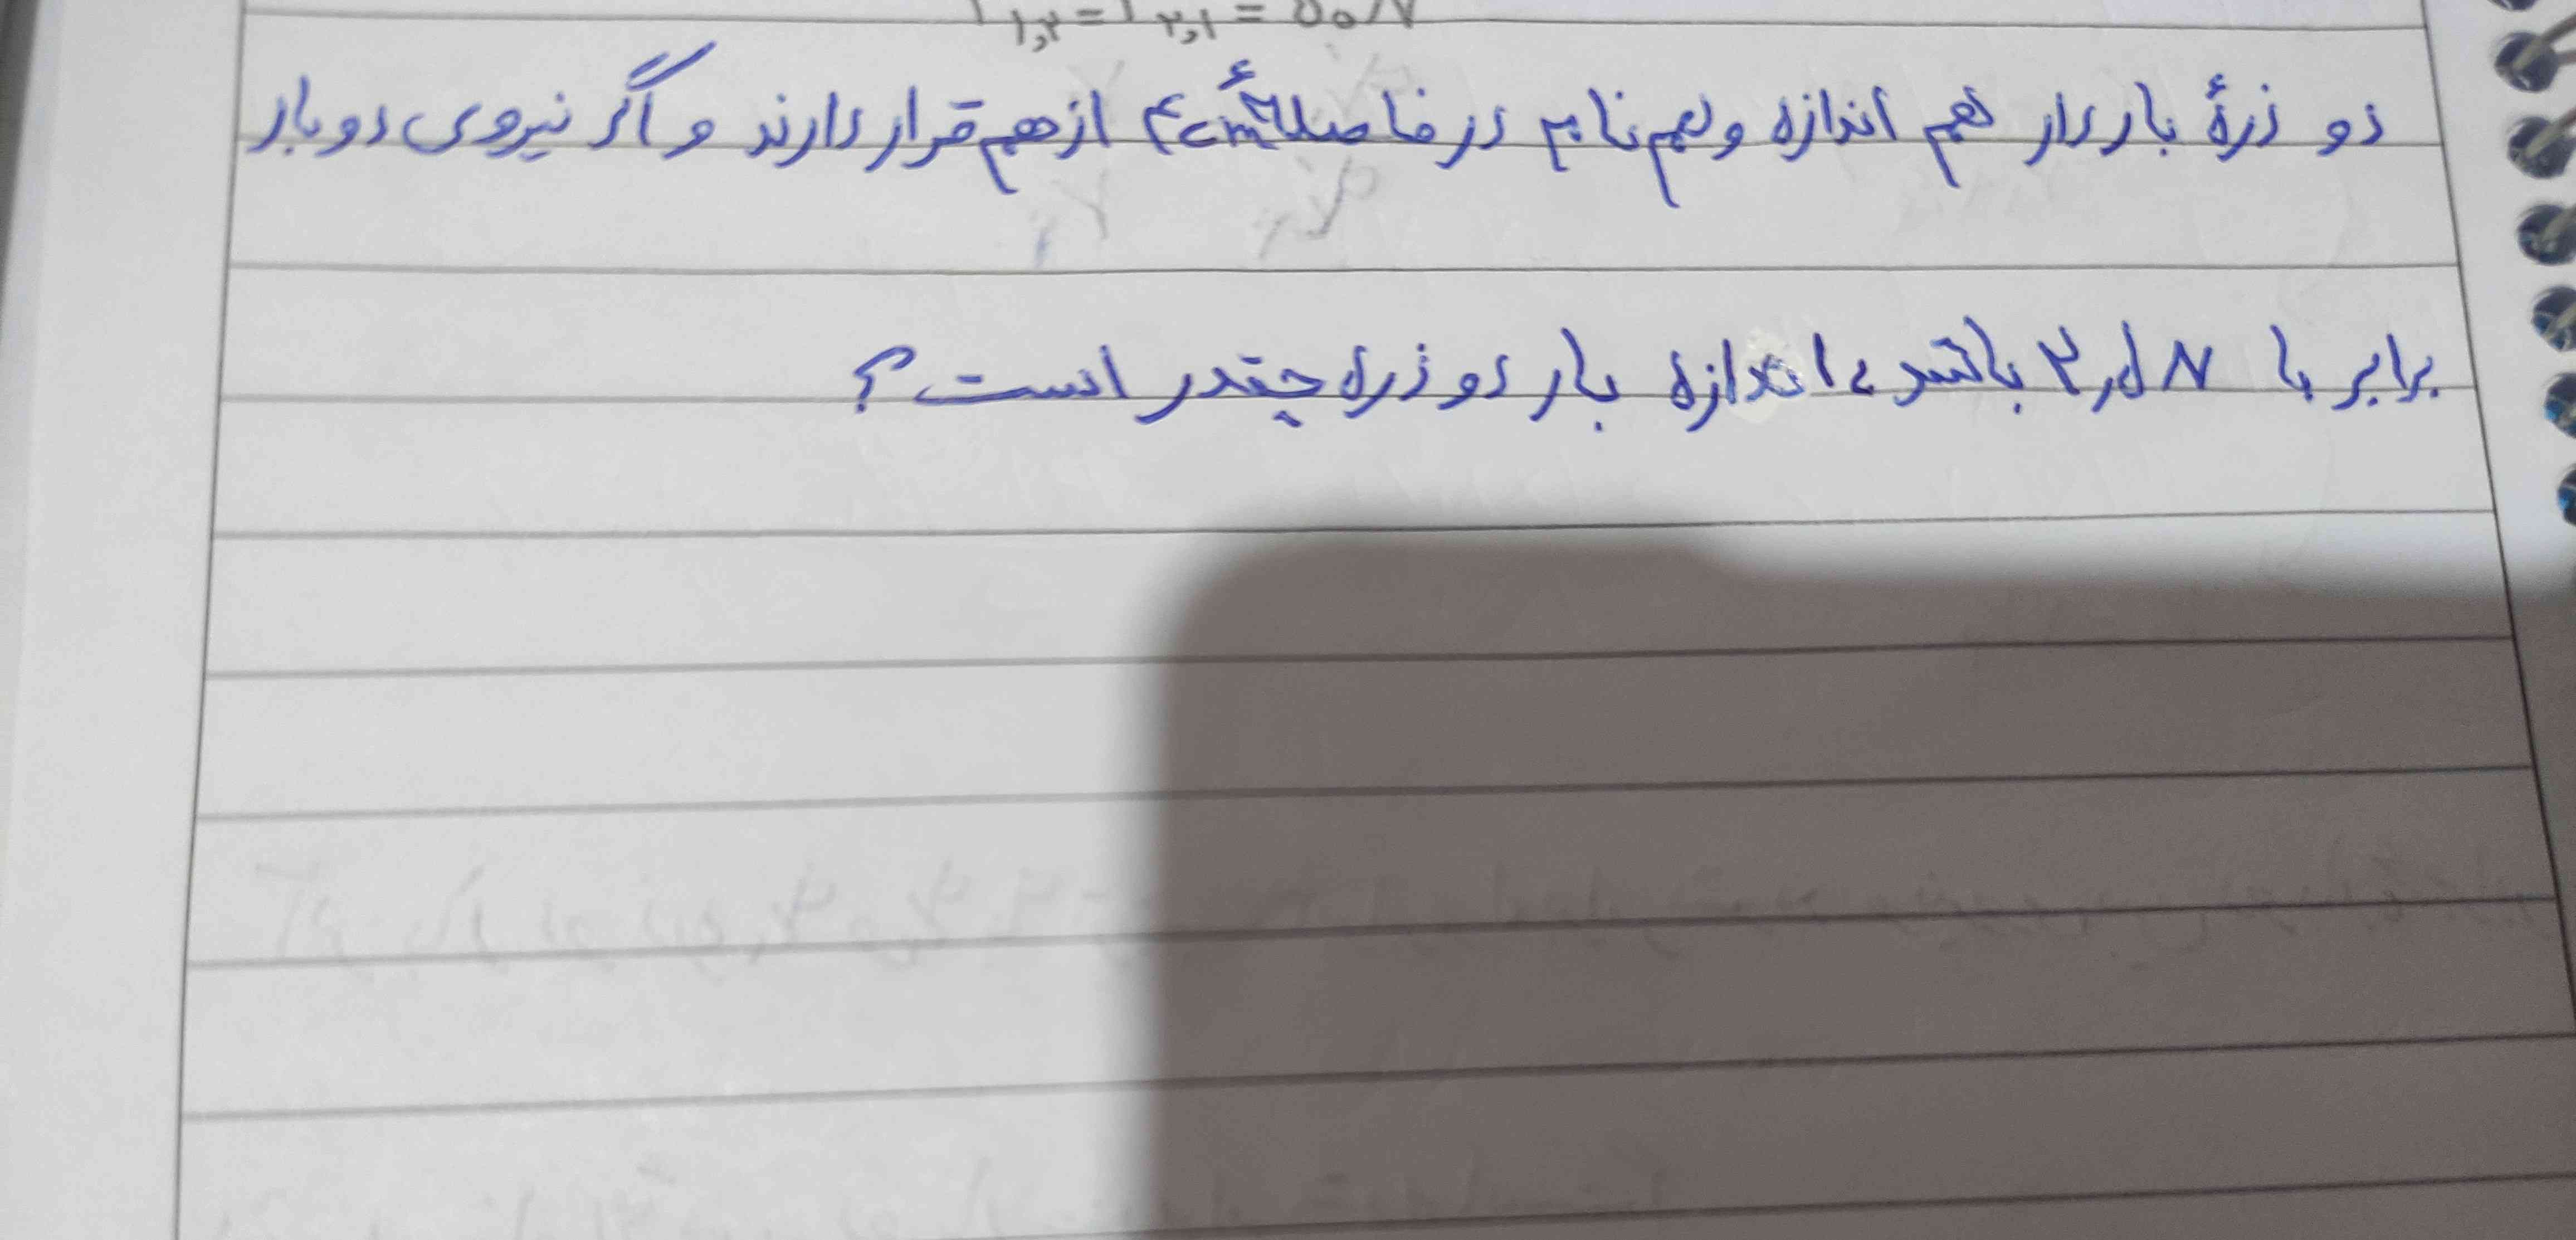 دو ذرهٔ باردار هم اندازه و هم نام در فاصلهٔ ۴cm از هم قرار دارند و اگر نیروی دو بار
برابر با N باشد، اندازه بار دو ذره چقدر است؟